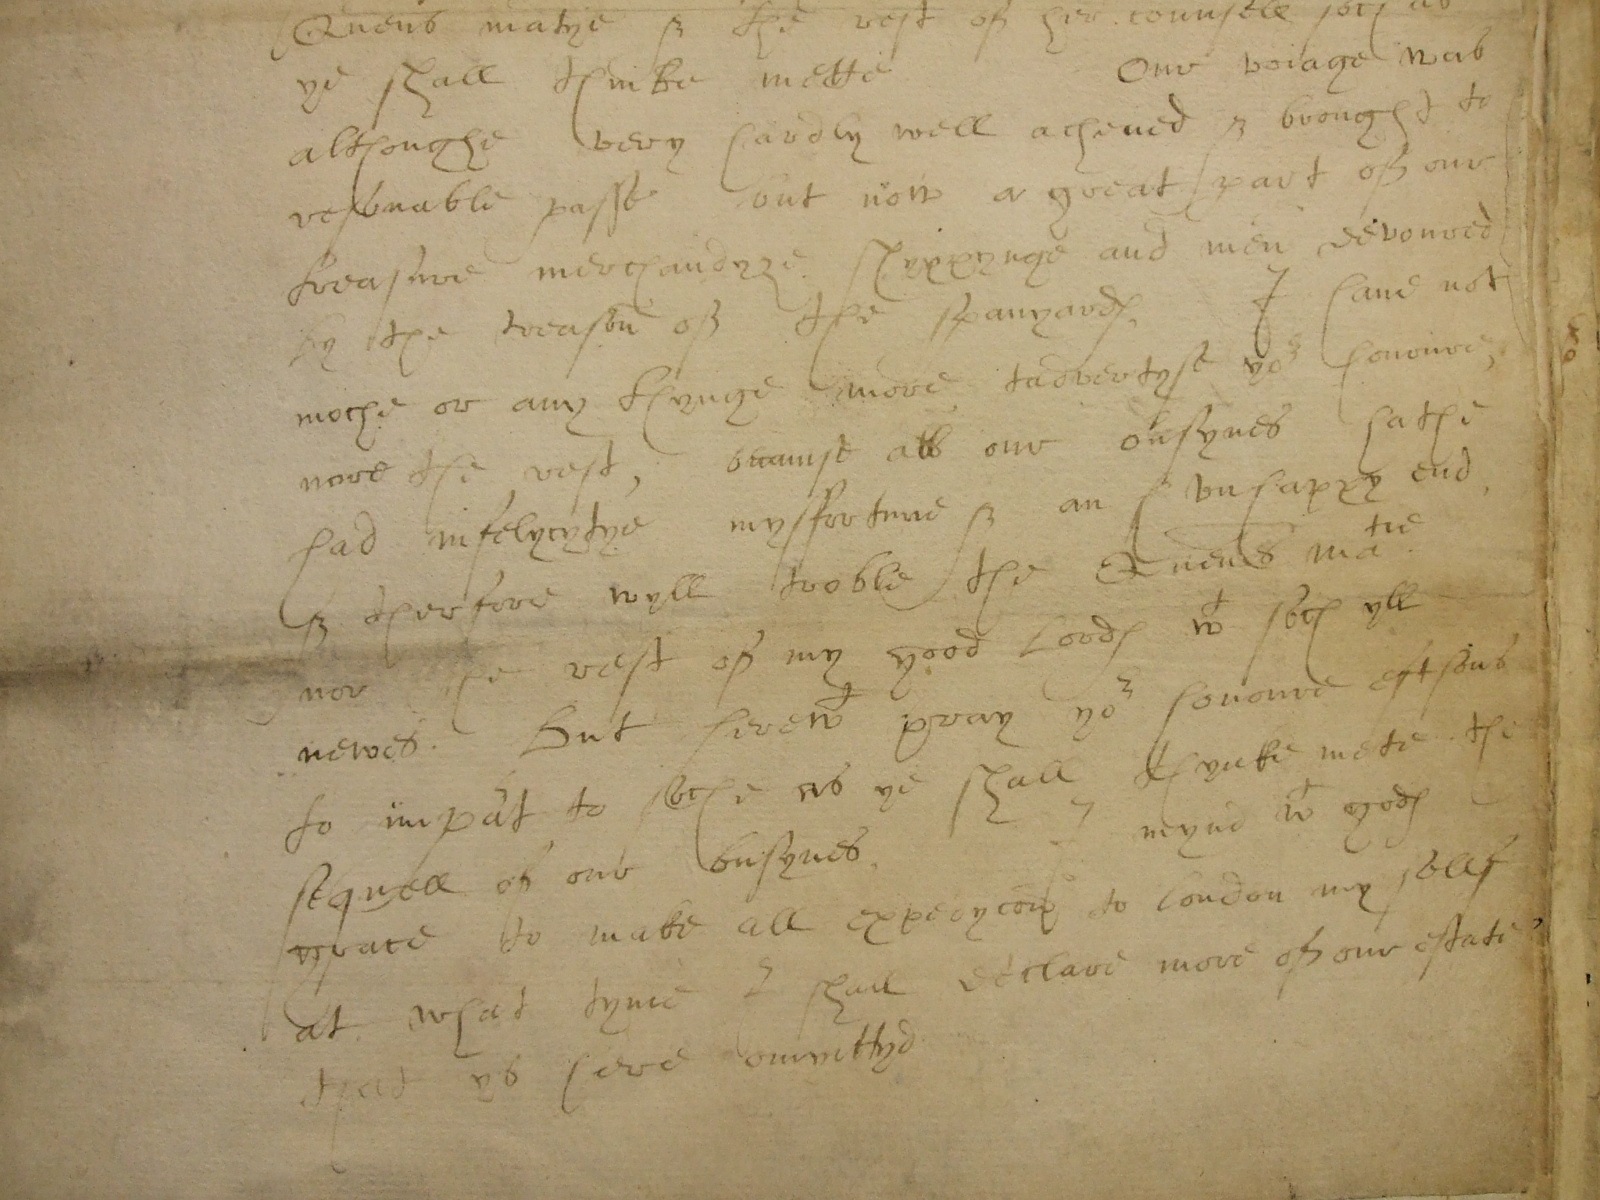 Quens matye & the rest of her counsell soch as
ye shall thinke mette Our voiage was
althoughe very hardly well acheved & brought to
resonable passe but now a great part of our
treasure merchandyze shyppynge and men devoured
by the treason of the spanyards. I have not
moche or any thynge more tadvertyse yor honoure,
nore the rest, because all our busynes hathe
had infelycytye myssfortune & an unhappy end,
& therfore wyll troble the Quens matie.
nor the rest of my good Lords wt soch yll
newes. But herewt pray yor honoure eftsons
to impart to soche as ye shall thynke mete the
sequell of our busynes. I mynd wt gods
grace to make all expedycion to London my self
at what tyme I shall declare more of our estate
that ys here omyttyd